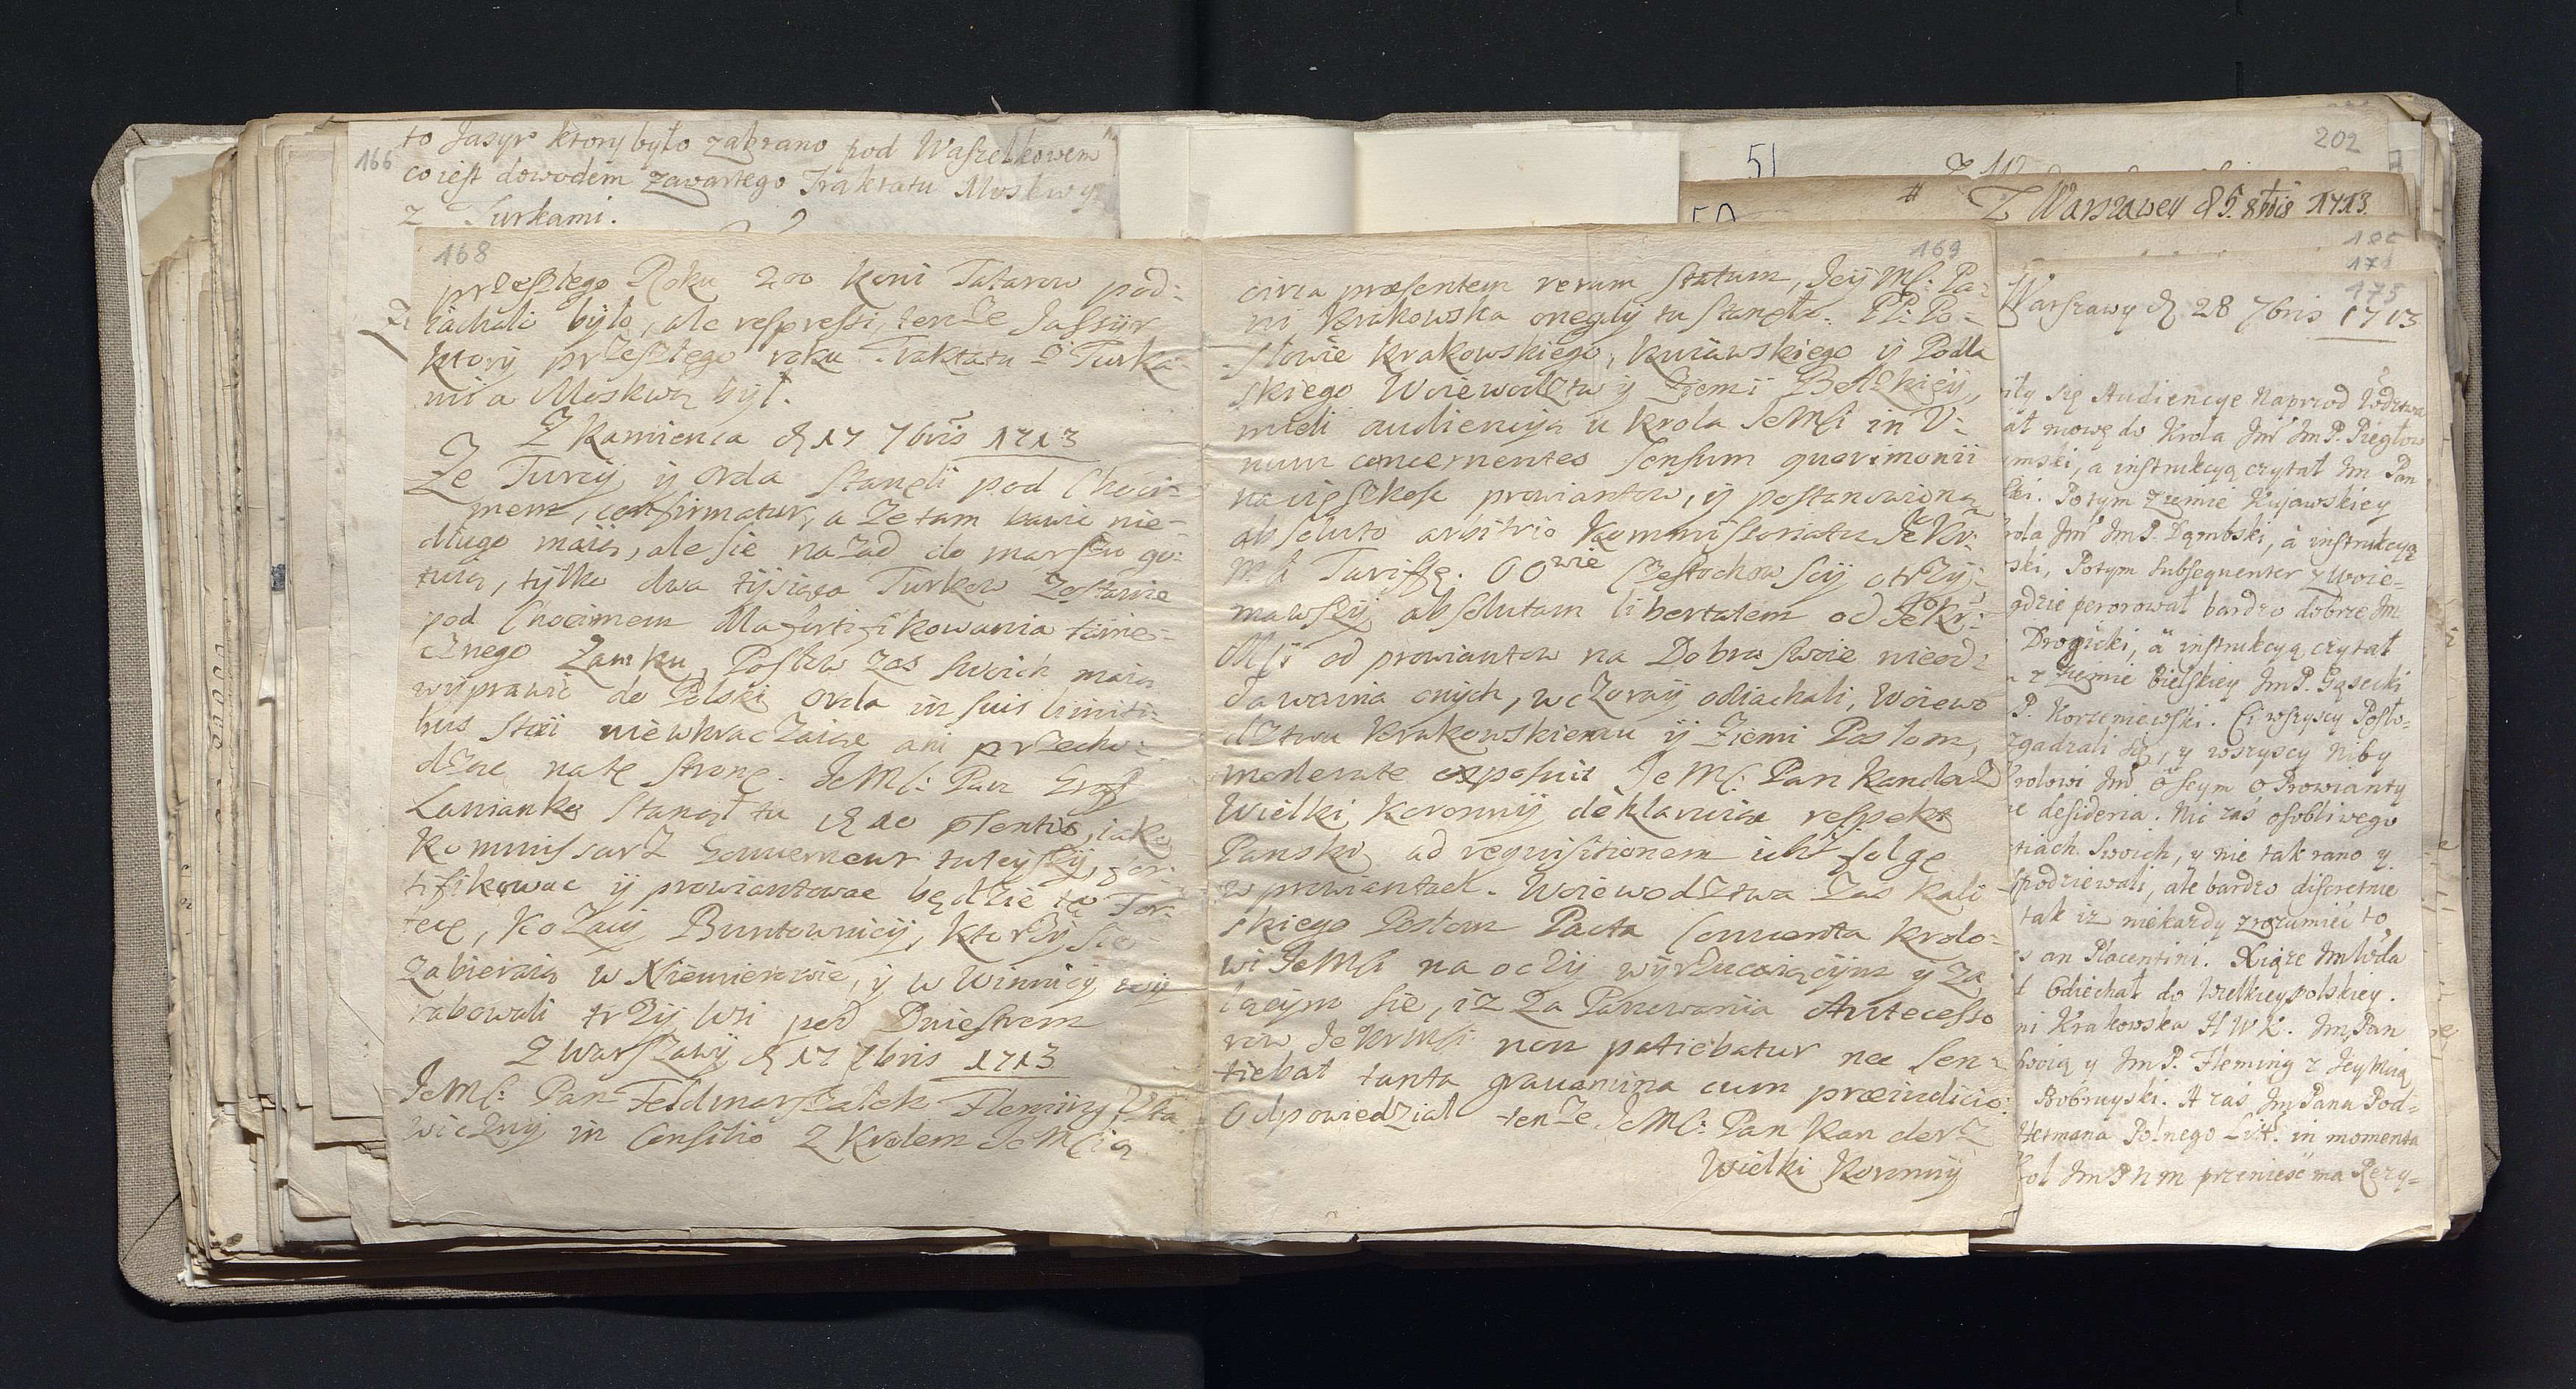 166
to Jasyr ktory było zabrano pod Waszelkowem
co iest dowodem zawartego Traktatu Moskwy
z Turkami.
168
przeszłego Roku 200 koni Tatarow pod-
iachali było, ale repressi, tenże Jassyr
ktory przeszłego roku Traktatu z Turka-
mi a Moskwą był.
Z Kamienca d 17 7bris 1713
Że Turcy y orda staneli pod Choci-
mem, confirmatur, a że tam bawic nie-
długo maią, ale sie nazad do marszu go-
tuią, tylko dwa tysiąca Turkow zostanie
pod Chocimem dla fortifikowania tame-
cznego Zamku, Posłow zas swoich maią
wyprawic do Polski orda in suis limiti-
bus stoi niewkraczaiąc ani przecho-
dząc na tę stronę. JeMć: Pan Graf
Lanianko stanoł tu d 10 praesentis, iako
Kommissarz Gouverneur tuteyszy, for-
tifikowac y prowiantowac będzie tę For-
tecę, Kozacy Buntownicy, ktorzy sie
zabieraią w Niemierowie, y w Winnicy, wy
rabowali trzy wsi pod Dniestrem
Z Warszawy d 17 7bris 1713
JeMć: Pan Feldmarszałek Fleming Usta
wiczny in Consilio z Krolem JeMścią
169
circa praesentem rerum statum, Jeÿ Mć: Pa-
ni Krakowska onegdy tu stanęła. PP: Po-
słowie Krakowskiego, Kuiawskiego y Podla
skiego Woiewodztw y Ziemi Bełzkiey,
mieli audiencyą u krola JeMći in U-
num concernentes sensum querimonii
na cięszkosc prowiantow, y postanowioną
absoluto arbitrio Kommissoriatu JeKr:
Mći Tariffę. OOwie Częstochowscy otrzy-
mawszy absolutam libertatem od JeKr:
Mśi od prowiantow na Dobra swoie nieod-
dawania onych, wczoray odiachali, Woiewo
dztwa Krakowskiemu y Ziemi Posłom,
moderate exposuit JeMć: Pan Kanclerz
Wielki Koronny deklaruiąc respekt
Panski, ad requisitionem ich folgę
w prowiantach. Woiewodztwa zas Kali
skiego Posłom Pacta Conventa krolo-
wi JeMśi na oczy wyrzucaiącym y ża
lącym sie, iz za Panowania Antecesso
row JeKrMśi non patiebatur nec sen-
tiebat tanta gravamina cum praeiudicio.
Odpowiedział tenże JeMć: Pan Kanclerz
Wielki Koronny
202
51
50
# Z Warszawey d 5. 8bris 1713.
175
Warszawy d 28 7bris 1713
się Audiencye Naprzod
mowę do Krola Jm Jm P. Piegłow
mski, a instrukcyą czytał Jm Pan
ski. Potym ziemie Kujawskiey
rola Jm Jm P. Dąmbski, à instrukcyą
ski, Potym subsequenter z Woie-
gdzie perorował bardzo dobrze Jm
Drogicki, ä instrukcyą czytał
z Ziemie Bielskiey Jm P. Gąsecki
P. Korzeniewski. Ci wszyscy Posło-
zgadzali się, y wszyscy niby
krolowi Jm ô seym o Prowianty
desideria. Nic zaś osobliwego
tiach swoich, y nie tak rano y
spodziewali, ale bardzo discretnie
tak iz niekazdy zrozumieć to
an Placentini. Xiąze Jm Wda
Odiechał do Wielkieypolskiey.
ni Krakowska H W K. Jm Pan
swoią y Jm P. Fleming z Jey Mcią
Bobruyski. A zaś Jm Pana Pod-
Hetmana Polnego Litt. in momenta
ol Jm P N M przenieść ma Rezy-